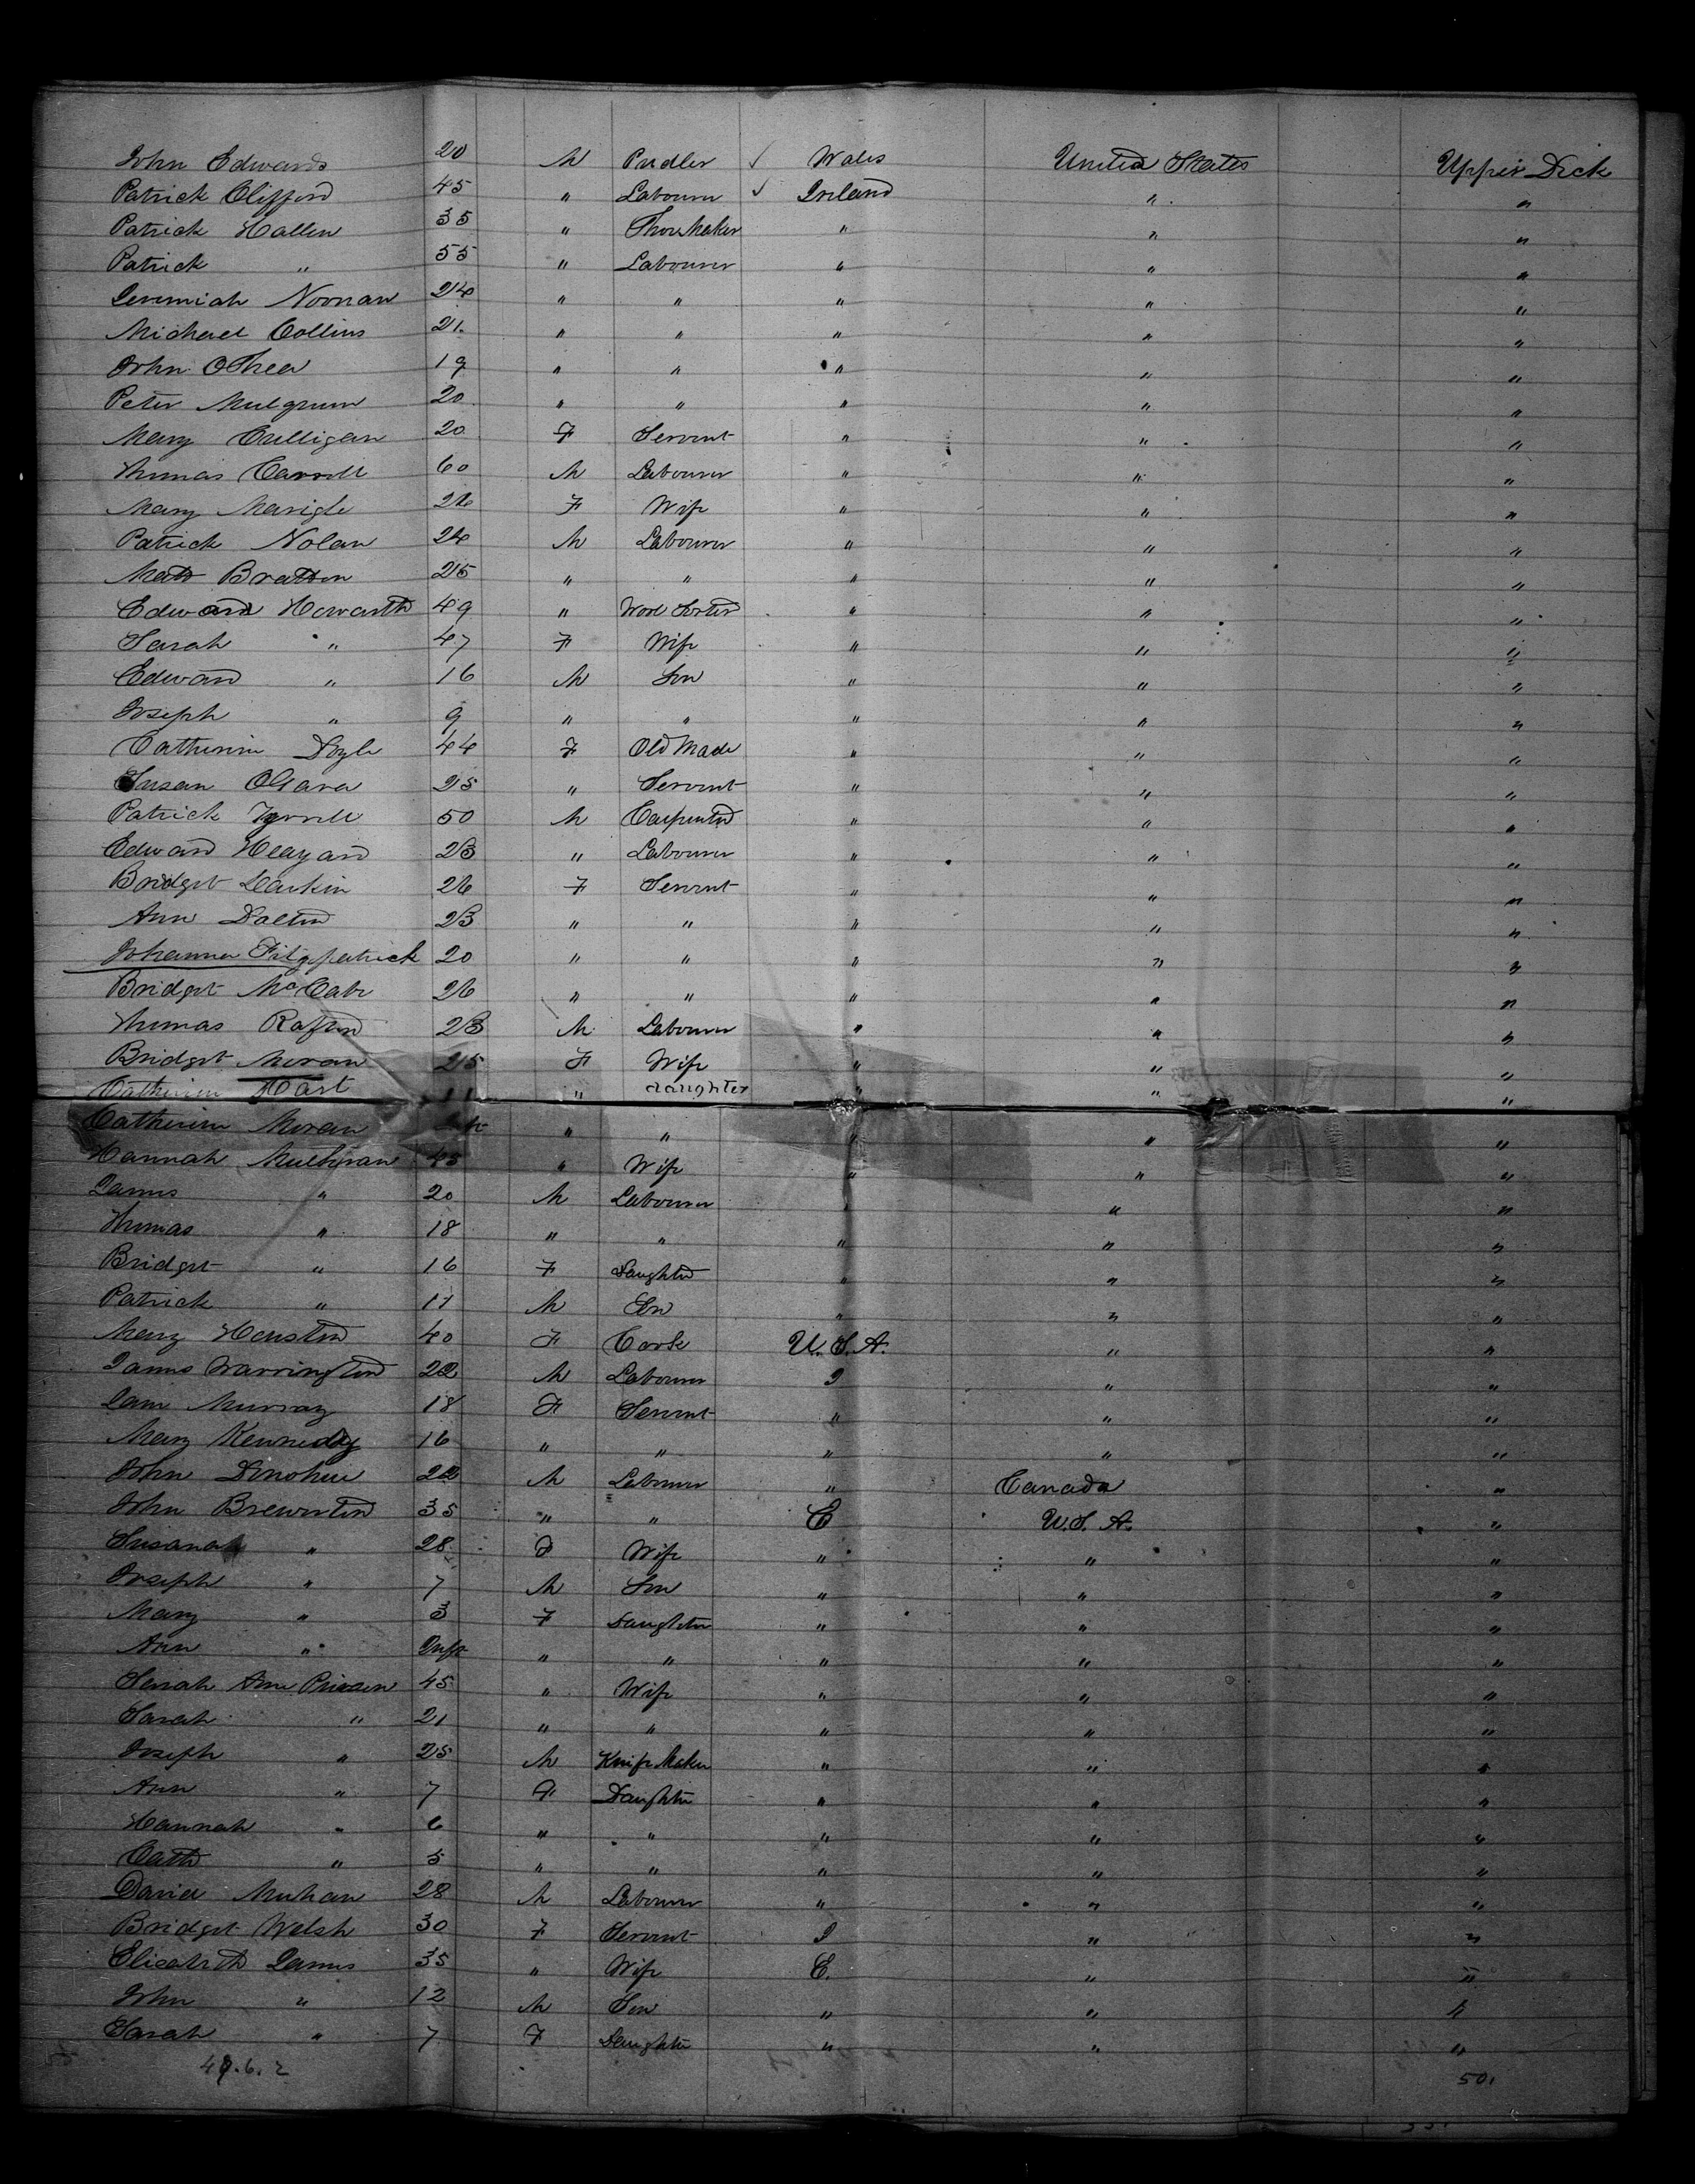 John Edwards 20 M Pudler ✓ Wales United States Upper Deck
Patrick Clifford 45 " Labourer ✓ Ireland " "
Patrick Hallen 35 " Shoe Maker " " "
Patrick " 55 " Labourer " " "
Jeremiah Noonan 24 " " " " "
Michael Collins 21 " " " " "
John OShea 19 " " " " "
Peter 20 " " " " "
Mary Culligan 20 F Servent " " "
Thomas Carroll 60 M Labourer " " "
Mary 26 F Wife " " "
Patrick Nolan 24 M Labourer " " "
Matt Bratton 25 " " " " "
Edward Howarth 49 " Wool Sorter " " "
Sarah " 47 F Wife " " "
Edward " 16 M Son " " "
Joseph " 9 " " " " "
Catherine Doyle 44 F Old Made " " "
Susan OGara 25 " Servent " " "
Patrick Tyrrell 50 M Carpenter " " "
Edward 23 " Labourer " " "
Bridget Larkin 26 F Servent " " "
Ann Dalton 23 " " " " "
Johanna Fitzpatrick 20 " " " " "
Bridget McCabe 26 " " " " "
Thomas 23 M Labourer " " "
Bridget Moran 25 F Wife " " "
Catherine Hart 11 " daughter " " "
Catherine Moran " " " " "
Hannah 45 " Wife " " "
James " 20 M Labourer " "
Thomas " 18 " " " " "
Bridget " 16 F Daughter " " "
Patrick " 11 M Son " " "
Mary Houston 40 F Cook U.S.A. " "
James Warrington 22 M Labourer I " "
Jane Murray 18 F Servent " " "
Mary Kennedy 16 " " " " "
John Donohue 22 M Labourer " Canada "
John Brewerton 35 " " E U.S.A. "
Susanah " 28 F Wife " " "
Joseph " 7 M Son " " "
Mary " 3 F Daughter " " "
Ann " Inft " " " " "
Sarah Ann 45 " Wife " " "
Sarah " 21 " " " " "
Joseph " 25 M Knife Maker " " "
Ann " 7 F Daughter " " "
Hannah " 6 " " " " "
Cath " 5 " " " " "
David 28 M Labourer " " "
Bridget Welsh 30 F Servent I " "
Elizabeth James 35 " Wife E. " "
John " 12 M Son " " "
Sarah " 7 F Daughter " " "
50